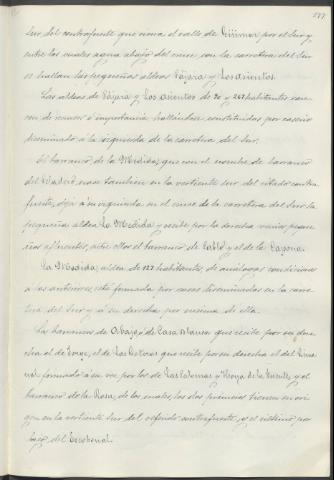 sur del contrafuerte que cierra el valle de Güimar por el Sur y
entre los cuales aguas abajo del cruce con la carretera del Sur
se hallan las pequeñas aldeas Pájara y Los Asientos.
Las aldeas de Pájara y Los Asientos de 70 y 267 habitantes care-
cen de interés é importancia hallándose constituidas por caserío
diseminado á la izquierda de la carretera del Sur.
El barranco de la Medida, que con el nombre de barranco
del Madrid, nace tambien en la vertiente Sur del citado contra-
fuerte, deja á su izquierda en el cruce de la carretera del Sur la
pequeña aldea La Medida y recibe por la derecha varios peque-
ños afluentes, entre ellos el barranco de Pablo y el de la Pagona.
La Medida, aldea de 127 habitantes, de análogas condiciones
á las anteriores, está formada por casas diseminadas en la carre-
tera del Sur y á su derecha por encima de ella.
Los barrancos de Abajo, de Casa blanca que recibe por su dere-
cha el de Eroge, el de Los Retoras que recibe por su derecha el del Lina-
formado á su vez por los de Las Colmenas y Hoya de la Fuente, y el
barranco de la Rosa, de los cuales, los dos primeros tienen su ori-
gen en la vertiente Sur del referido contrafuerte, y el último por
bajo del Escobonal.